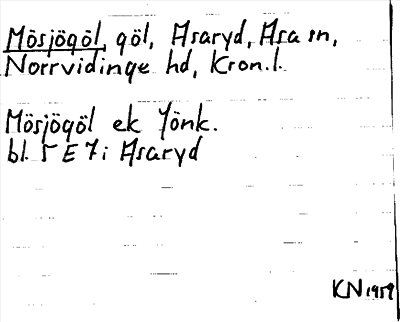 Mösjögöl, göl, Asaryd, Asa sn,
Norrvidinge hd, Kron.l.
Mösjögöl ek Jönk.
bl. 5 E 7 i Asaryd
KN 1959